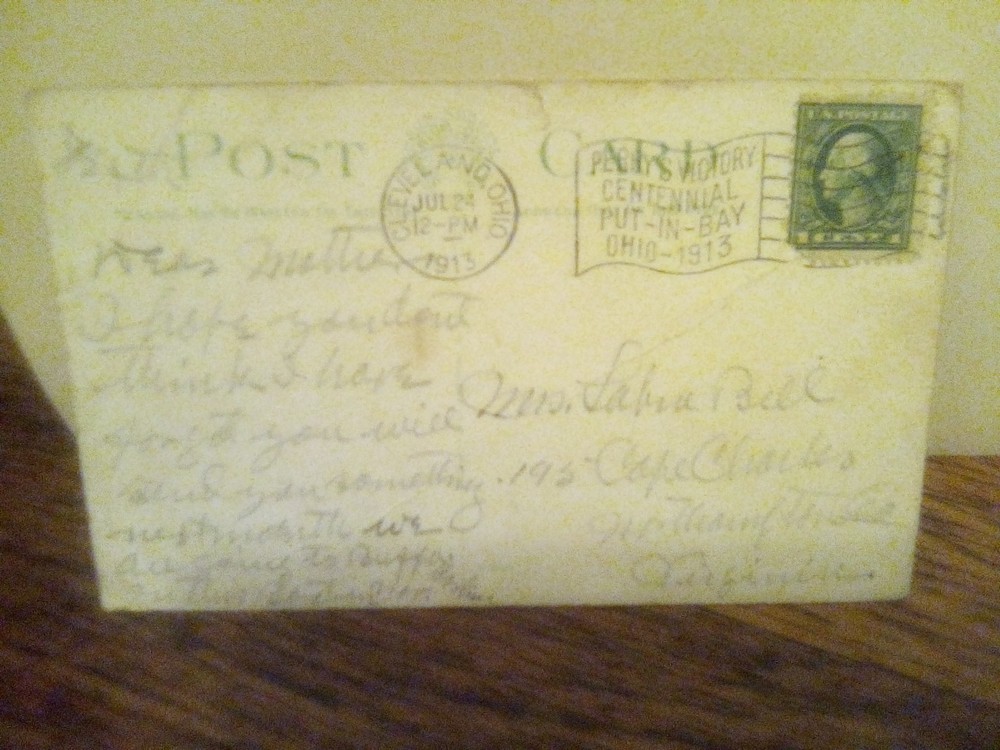 POST CARD
CLEVELAND, OHIO
JUL 24
12-PM
1913
PERRY'S VICTORY
CENTENNIAL
PUT-IN-BAY
OHIO-1913
U.S. POSTAGE
1 CENT 1
Dear Mother
I hope you dont
think I have
you will
send you something
next month we
are to
Mrs. Bell
195 Cape Charles
Northampton Co
Virginia